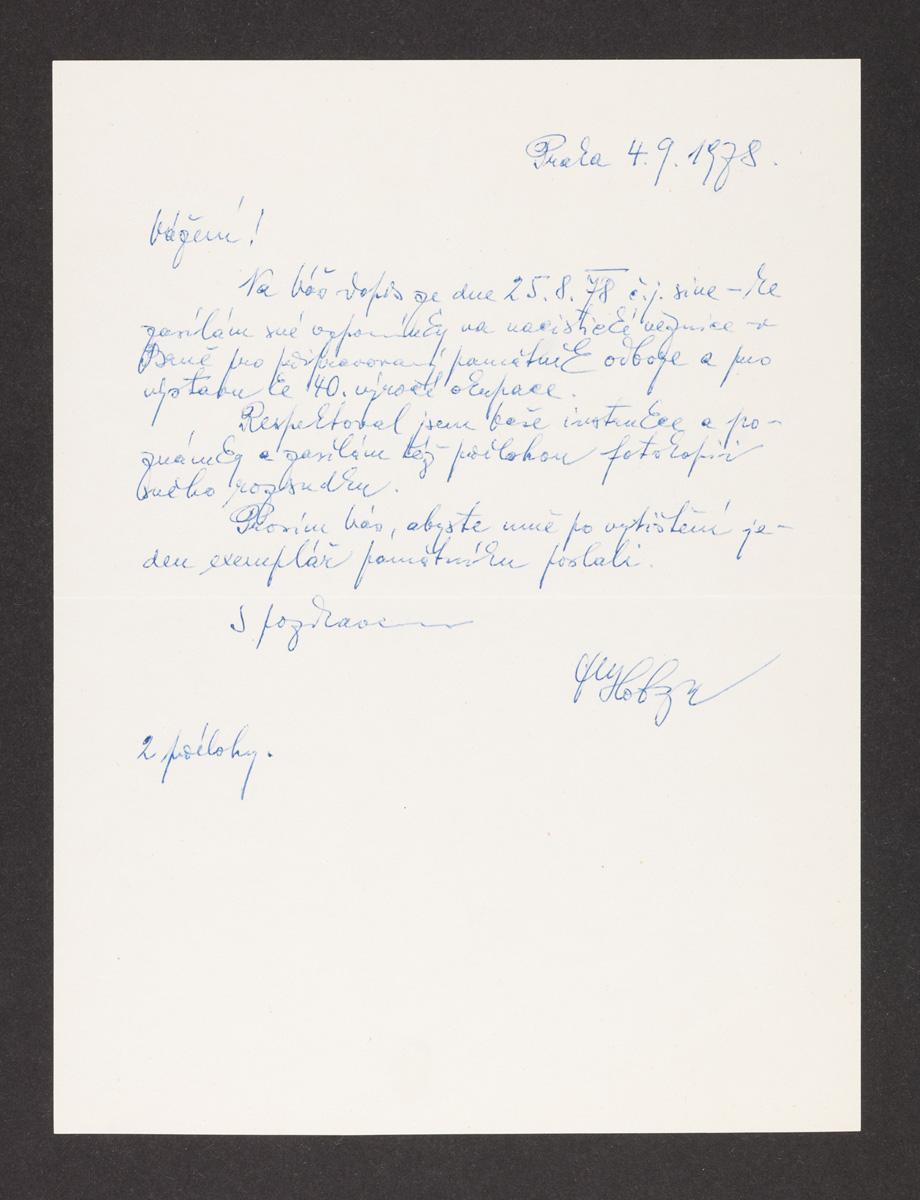 Praha 4.9.1978.
Vážení!
Na Váš dopis ze dne 25.8.78 č.j. sine - Ke
zasílám své vzpomínky na nacistické věznice v
Brně pro připravovaný památník odboje a pro
výstavu ke 40. výročí okupace.
Respektoval jsem Vaše instrukce a po-
známky a zasílám též přílohou fotokopii
svého rozsudku.
Prosím Vás, abyste mně po vytištění je-
den exemplář památníku poslali.
S pozdravem
Hobza
2 přílohy.